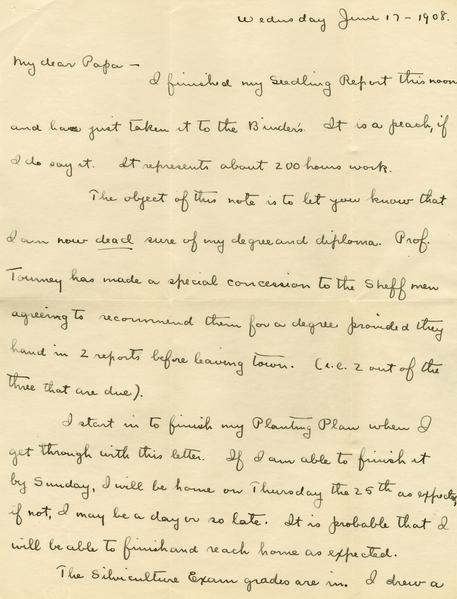 Wednsday June 17-1908.
My dear Papa —
I finished my Seedling Report this noon
and have just taken it to the Binders. It is a peach, if
I do say it. It represents about 200 hours work.
The object of this note is to let you know that
I am now dead sure of my degree and diploma. Prof.
Toumey has made a special concession to the Sheff men
agreeing to recommend them for a degree provided they
hand in 2 reports before leaving town. (i.e. 2 out of the
three that are due).
I start in to finish my Planting Plan when I
get through with this letter. If I am able to finish it
by Sunday, I will be home on Thursday the 25th as expected,
if not, I may be a day or so late. It is probable that I
will be able to finish and reach home as expected.
The Silviculture Exam grades are in. I drew a